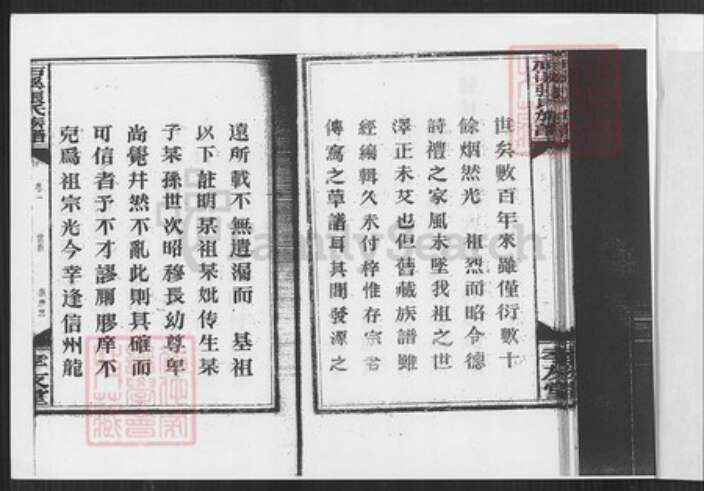 世矣數百年來雖僅衍數十
餘烟然光 祖烈而昭令德
詩禮之家風未墜我祖之世
澤正未艾也但舊藏族譜雖
經編輯久未付梓惟存宗
傳寫之草譜耳其間發源之
遠所載不無遺漏而 基祖
以下註明某祖某妣传生某
子某孫世次昭穆長幼尊卑
尚覺井然不亂此則其確而
可信者予不才謬膺膠庠不
克爲祖宗光今幸逢信州龍
張氏族譜
卷一
孝友堂
孝友堂
FamilySearch